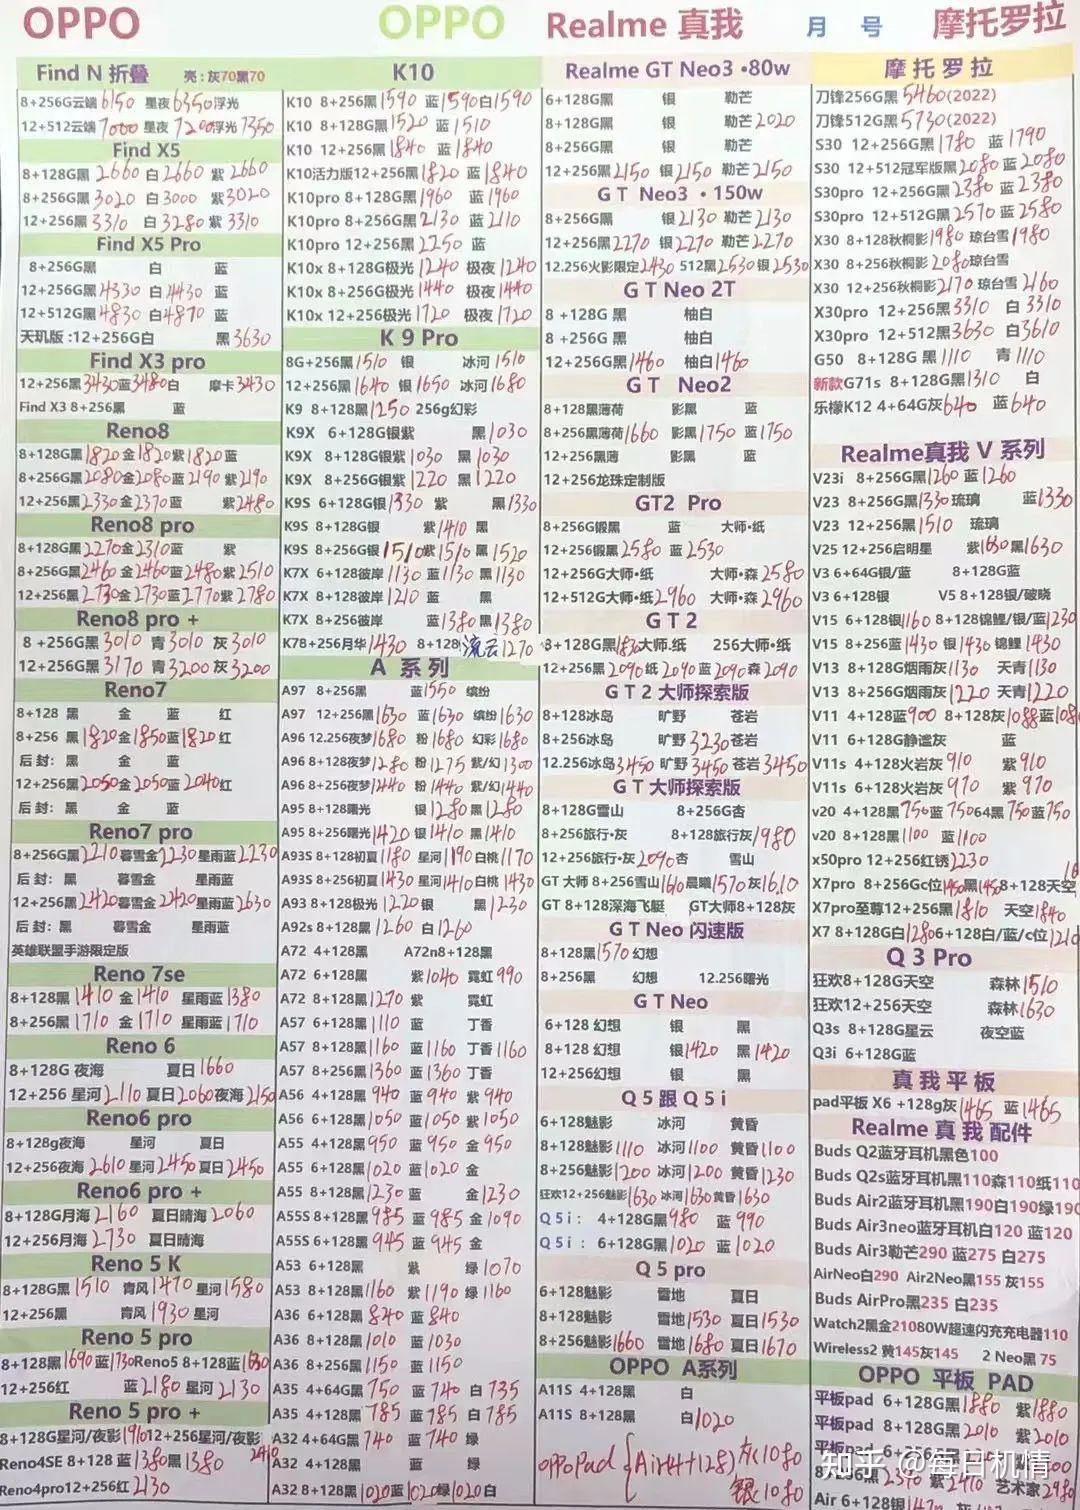 OPPO
Find N 折叠 亮:灰70黑70
8+256G云端6150 星夜6350浮光
12+512云端7000 星夜7200浮光7350
Find X5
8+128G黑2660 白2660 紫2660
8+256G黑3020 白3000 紫3020
12+256黑3310 白3280紫3310
Find X5 Pro
8+256G黑 白 蓝
12+256G黑4330 白4430 蓝
12+512G黑4830 白4870 蓝
天玑版:12+256G白 黑3630
Find X3 pro
12+256黑3430蓝3480白 摩卡3430
Find X3 8+256黑 蓝
Reno8
8+128G黑1820金1820紫1820蓝
8+256G黑2080金2080蓝2190紫2190
12+256黑2330金2370蓝 紫2480
Reno8 pro
8+128G黑2270金2310蓝 紫
8+256G黑2460金2460蓝2480紫2510
12+256黑2730金2730蓝2770紫2780
Reno8 pro +
8+256G黑3010 青3010 灰3010
12+256G黑3170 青3200灰3200
Reno7
8+128 黑 金 蓝 红
8+256 黑1820金1850蓝1820红
后封: 黑 金 蓝
12+256黑2050金2050蓝2040红
后封: 黑 金 蓝
Reno7 pro
8+256G黑2210暮雪金2230星雨蓝2230
后封: 黑 暮雪金 星雨蓝
12+256黑2420暮雪金2420星雨蓝2630
后封: 黑 暮雪金 星雨蓝
英雄联盟手游限定版
Reno 7se
8+128黑1410 金1410 星雨蓝1380
8+256黑1710 金1710 星雨蓝1710
Reno 6
8+128G 夜海 夏日1660
12+256 星河2110 夏日2060夜海2150
Reno6 pro
8+128g夜海 星河 夏日
12+256夜海2610星河2450夏日2450
Reno6 pro +
8+128G月海2160 夏日晴海2060
12+256月海2730 夏日晴海
Reno 5 K
8+128G黑1510 青风1470 星河1580
12+256黑 青风1930 星河
Reno 5 pro
8+128黑1690蓝1730Reno5 8+128蓝1630
12+256红 蓝2180 星河2130
Reno 5 pro +
8+128G星河/夜影1910 12+256星河/夜影2410
Reno4SE 8+128 蓝1380黑1380
Reno4pro12+256红2130
OPPO
K10
K10 8+256黑1590 蓝1590白1590
K10 8+128G黑1520 蓝1510
K10 12+256黑1840 蓝1840
K10活力版12+256黑1820 蓝1840
K10pro 8+128G黑1960 蓝1960
K10pro 8+256G黑2130 蓝2110
K10pro 12+256黑2250 蓝
K10x 8+128G极光1240 极夜1240
K10x 8+256G极光1440 极夜1440
K10x 12+256极光1720 极夜1720
K 9 Pro
8G+256黑1510 银 冰河1510
12+256黑1640 银1650 冰河1680
K9 8+128黑1250 256g幻彩
K9X 6+128G银紫 黑1030
K9X 8+128G银紫1030 黑1030
K9X 8+256G银紫1220 黑1220
K9S 6+128G银1330 紫 黑1330
K9S 8+128G银 紫1410 黑
K9S 8+256G银1510紫1510黑1520
K7X 6+128彼岸1130 蓝1130 黑1130
K7X 8+128彼岸1210 蓝 黑
K7X 8+256彼岸 蓝1380黑1380
K78+256月华1430 8+128流云1270
A 系列
A97 8+256黑 蓝1550 缤纷
A97 12+256黑1630 蓝1630 缤纷1630
A96 12.256夜梦1680 粉1680 幻彩1680
A96 8+128夜梦1280 粉1275 紫/幻1300
A96 8+256夜梦1440 粉1440 紫/幻1440
A95 8+128曙光 银1280黑1280
A95 8+256曙光1420 银1410 黑1410
A93S 8+128初夏1180 星河1190白桃1170
A93S 8+256初夏1430星河1410白桃1430
A93 8+128极光1220银 黑1230
A92s 8+128黑1260 白1260
A72 4+128黑 A72n8+128黑
A72 6+128黑 紫1040 霓虹990
A72 8+128黑1270 紫 霓虹
A57 6+128黑1110 蓝 丁香
A57 8+128黑1160 蓝1160 丁香1160
A57 8+256黑1360 蓝1360丁香
A56 4+128黑940 蓝940 紫940
A56 6+128黑1050 蓝1050 紫1050
A55 4+128黑950 蓝950 金950
A55 6+128黑1020 蓝1020 金
A55 8+128黑1230 蓝 金1230
A55S 8+128黑985 蓝985 金1090
A55S 6+128黑945 蓝945 金
A53 6+128黑 紫 绿1070
A53 8+128黑1160 紫1190 绿1160
A36 6+128黑840 蓝840
A36 8+128黑1010 蓝1030
A36 8+256黑1150 蓝1150
A35 4+64G黑750 蓝740 白735
A35 4+128黑785 蓝785 白785
A32 4+64G黑740 蓝740 绿
A32 4+128黑 蓝 绿
A32 8+128黑1020蓝1020绿1020白
Realme 真我
Realme GT Neo3 •80w
6+128G黑 银 勒芒
8+128G黑 银 勒芒2020
8+256G黑 银 勒芒
12+256黑2150 银2150 勒芒2150
G T Neo3 • 150w
8+256G黑 银2130 勒芒2130
12+256黑2270 银2270 勒芒2270
12.256火影限定2430 512黑2530银2530
G T Neo 2T
8 +128G 黑 柚白
8 +256G 黑 柚白
12+256G黑1460 柚白1460
G T Neo2
8+128黑薄荷 影黑 蓝
8+256黑薄荷1660 影黑1750 蓝1750
12+256黑薄 影黑 蓝
12+256龙珠定制版
GT2 Pro
8+256G缎黑 蓝 大师·纸
12+256缎黑2580 蓝2530
12+256G大师·纸 大师·森2580
12+512G大师·纸2960 大师·森2960
G T 2
8+128G黑1830大师.纸 256大师·纸
12+256黑2090纸2090蓝2090森2090
G T 2 大师探索版
8+128冰岛 旷野 苍岩
8+256冰岛 旷野3230苍岩
12.256冰岛3450 旷野3450 苍岩3450
G T 大师探索版
8+128G雪山 8+256G杏
8+256旅行·灰 8+128旅行灰1980
12+256旅行·灰2090杏 雪山
GT 大师 8+256雪山1610晨曦1570灰1610
GT 8+128深海飞艇 GT大师8+128灰
G T Neo 闪速版
8+128黑1570幻想
8+256黑 幻想 12.256曙光
G T Neo
6+128 幻想 银 黑
8+128 幻想 银1420 黑1420
12+256幻想 银 黑
Q 5 跟 Q 5 i
6+128魅影 冰河 黄昏
8+128魅影1110 冰河1100 黄昏1100
8+256魅影1200 冰河1200 黄昏1230
狂欢12+256魅影1630 冰河1630黄昏1630
Q 5 i : 4+128G黑980 蓝990
Q 5 i : 6+128G黑1020 蓝1020
Q 5 pro
6+128魅影 雪地 夏日
8+128魅影 雪地1530 夏日1530
8+256魅影1660 雪地1680 夏日1670
OPPO A系列
A11S 4+128黑 白
A11S 8+128黑 白1020
OPPO Pad { Air(4+128) 灰1080
银1080
月 号 摩托罗拉
摩 托 罗 拉
刀锋256G黑5460(2022)
刀锋512G黑5730(2022)
S30 12+256G黑1780 蓝1790
S30 12+512冠军版黑2080 蓝2080
S30pro 12+256G黑2380 蓝2380
S30pro 12+512G黑2570 蓝2580
X30 8+128秋桐影1980 琼台雪1980
X30 8+256秋桐影2080琼台雪
X30 12+256秋桐影2170 琼台雪2160
X30pro 12+256黑3310 白3310
X30pro 12+512黑3630 白3610
G50 8+128G 黑1110 青1110
新款G71s 8+128G黑1310 白
乐檬K12 4+64G灰640 蓝640
Realme真我 V 系列
V23i 8+256G黑1260 蓝1260
V23 8+256G黑1330琉璃 蓝1330
V23 12+256黑1510 琉璃
V25 12+256启明星 紫1630黑1630
V3 6+64G银/蓝 8+128G蓝
V3 6+128银 V5 8+128银/破晓
V15 6+128银1160 8+128锦鲤/银/蓝1230
V15 8+256蓝1430 银1430锦鲤1430
V13 8+128G烟雨灰1130 天青1130
V13 8+256G烟雨灰1220 天青1220
V11 4+128蓝900 8+128灰1088蓝108
V11 6+128G静谧灰 蓝
V11s 4+128火岩灰910 紫910
V11s 6+128火岩灰970 紫970
v20 4+128黑750蓝750 64黑750蓝750
v20 8+128黑1100 蓝1100
x50pro 12+256红锈2230
X7pro 8+256Gc位1450黑1450 8+128天空
X7pro至尊12+256黑1810 天空1840
X7 8+128G白1280 6+128白/蓝/c位1210
Q 3 Pro
狂欢8+128G天空 森林1510
狂欢12+256天空 森林1630
Q3s 8+128G星云 夜空蓝
Q3i 6+128G蓝
真 我 平 板
pad平板 X6 +128g灰1465 蓝1465
Realme 真 我 配件
Buds Q2蓝牙耳机黑色100
Buds Q2s蓝牙耳机黑110森110纸110
Buds Air2蓝牙耳机黑190白190绿190
Buds Air3neo蓝牙耳机白120 蓝120
Buds Air3勒芒290 蓝275 白275
AirNeo白290 Air2Neo黑155 灰155
Buds AirPro黑235 白235
Watch2黑金21080W超速闪充充电器110
Wireless2 黄145灰145 2 Neo黑 75
OPPO 平板 PAD
平板pad 6+128G黑1880 紫1880
平板pad 8+128G黑2010 紫2010
平板pad
艺术家
Air 6+128G银
知乎 @每日机情